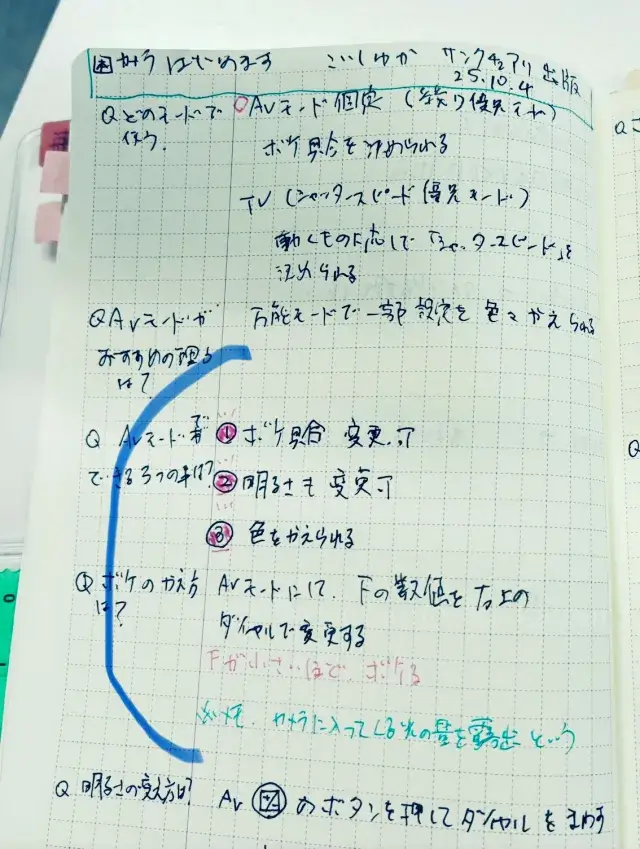 カメラはじめます こいしゆうか サンクチュアリ出版
25.10.4
Q どのモードで使う?
○ Avモード固定 (絞り優先モード)
ボケ具合を決められる
TV (シャッタースピード優先モード)
動くものに対して「シャッタースピード」を
決められる
Q Avモードが
おすすめの理由
は?
万能モードで一部設定を色々かえられる
Q Avモードで
できる3つの事は?
① ボケ具合 変更可
② 明るさも変更可
③ 色をかえられる
Q ボケのかえ方
は?
Avモードにて、Fの数値を右上の
ダイヤルで変更する
Fが小さいほど、ボケる
※メモ、カメラに入ってくる光の量を露出という
Q 明るさの変え方は?
Av のボタンを押してダイヤルをまわす